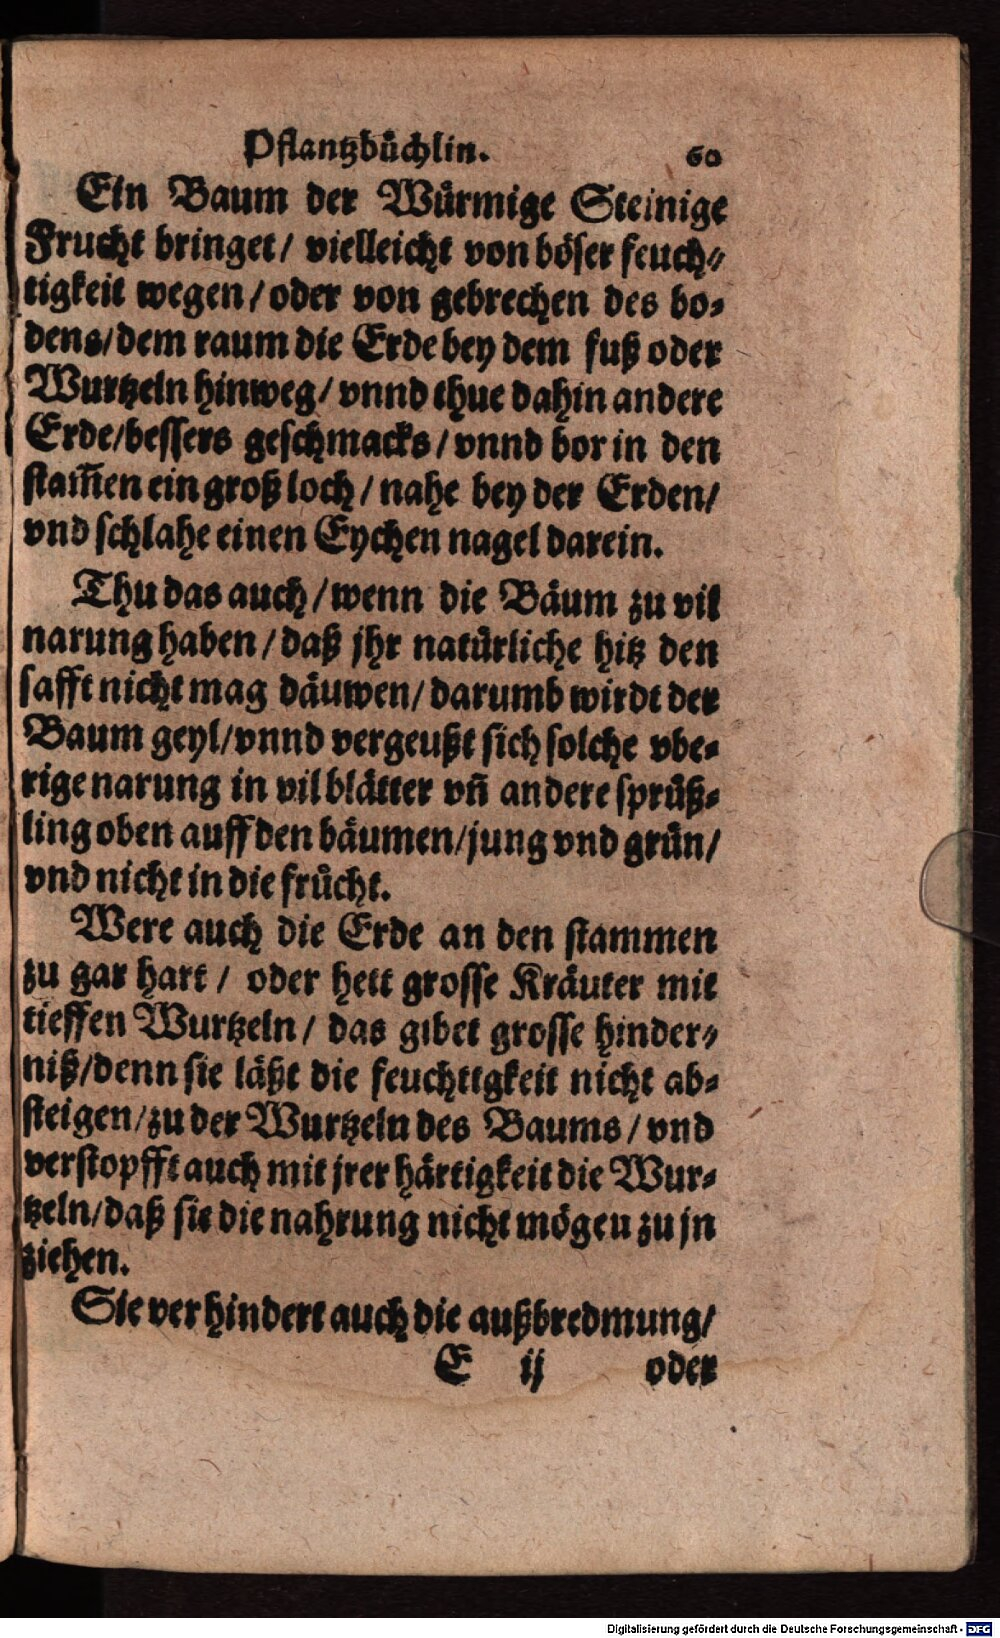 Pflantzbuͤchlin. 60
Ein Baum der Wuͤrmige Steinige
Frucht bringet/ vielleicht von boͤser feuch-
tigkeit wegen/ oder von gebrechen des bo-
dens/dem raum die Erde bey dem fuß oder
Wurtzeln hinweg/ vnnd thue dahin andere
Erde/bessers geschmacks/ vnnd bor in den
stam̃en ein groß loch/ nahe bey der Erden/
vnd schlahe einen Eychen nagel darein.
Thu das auch/ wenn die Baͤum zu vil
narung haben/ daß jhr natuͤrliche hitz den
safft nicht mag daͤuwen/ darumb wirdt der
Baum geyl/vnnd vergeußt sich solche vbe-
rige narung in vil blaͤtter vñ andere spruͤß-
ling oben auff den baͤumen/jung vnd gruͤn/
vnd nicht in die fruͤcht.
Were auch die Erde an den stammen
zu gar hart/ oder hett grosse Kraͤuter mit
tieffen Wurtzeln/ das gibet grosse hinder-
niß/denn sie laͤßt die feuchtigkeit nicht ab-
steigen/zu der Wurtzeln des Baums/ vnd
verstopfft auch mit jrer haͤrtigkeit die Wur-
tzeln/daß sie die nahrung nicht moͤgen zu jn
ziehen.
Sie verhindert auch die außbredmung/
E ij oder
Digitalisierung gefördert durch die Deutsche Forschungsgemeinschaft - DFG